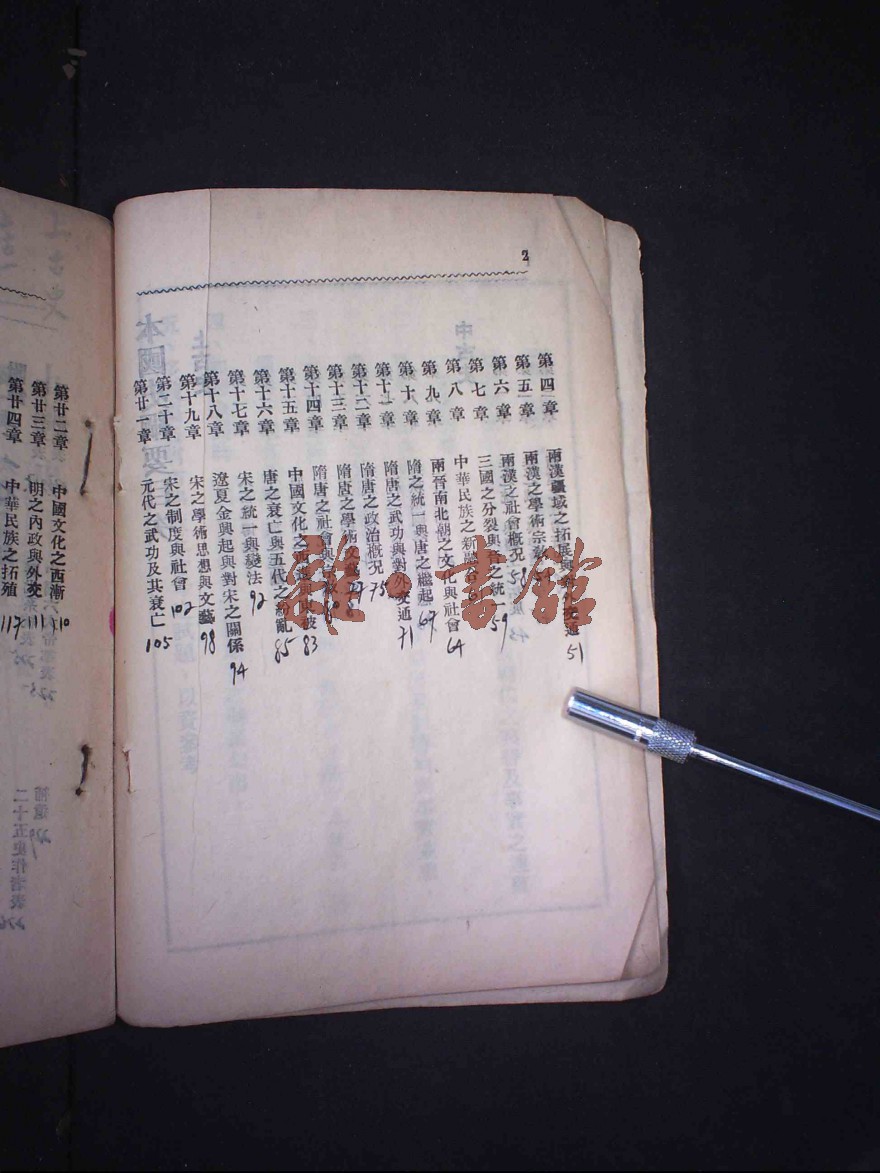 2
第四章 兩漢疆域之拓展與對外交通 51
第五章 兩漢之學術宗教
第六章 兩漢之社會概況 58
第七章 三國之分裂與晉之統一 59
第八章 中華民族之新融合 61
第九章 兩晉南北朝之文化與社會 64
第十章 隋之統一與唐之繼起 67
第十一章 隋唐之武功與對外交通 71
第十二章 隋唐之政治概况 75
第十三章 隋唐之學術文藝 77
第十四章 隋唐之社會與宗教
第十五章 中國文化之西週與東被 83
第十六章 唐之衰亡與五代之紛亂 85
第十七章 宋之統一與變法 92
第十八章 遼夏金興起與對宋之關係 94
第十九章 宋之學術思想與文藝 98
第二十章 宋之制度與社會 102
第廿一章 元代之武功及其衰亡 105
第廿二章 中國文化之西漸 110
第廿三章 明之內政與外交 111
第廿四章 中華民族之拓殖 117
補遺
二十五史作者表
雜·書館